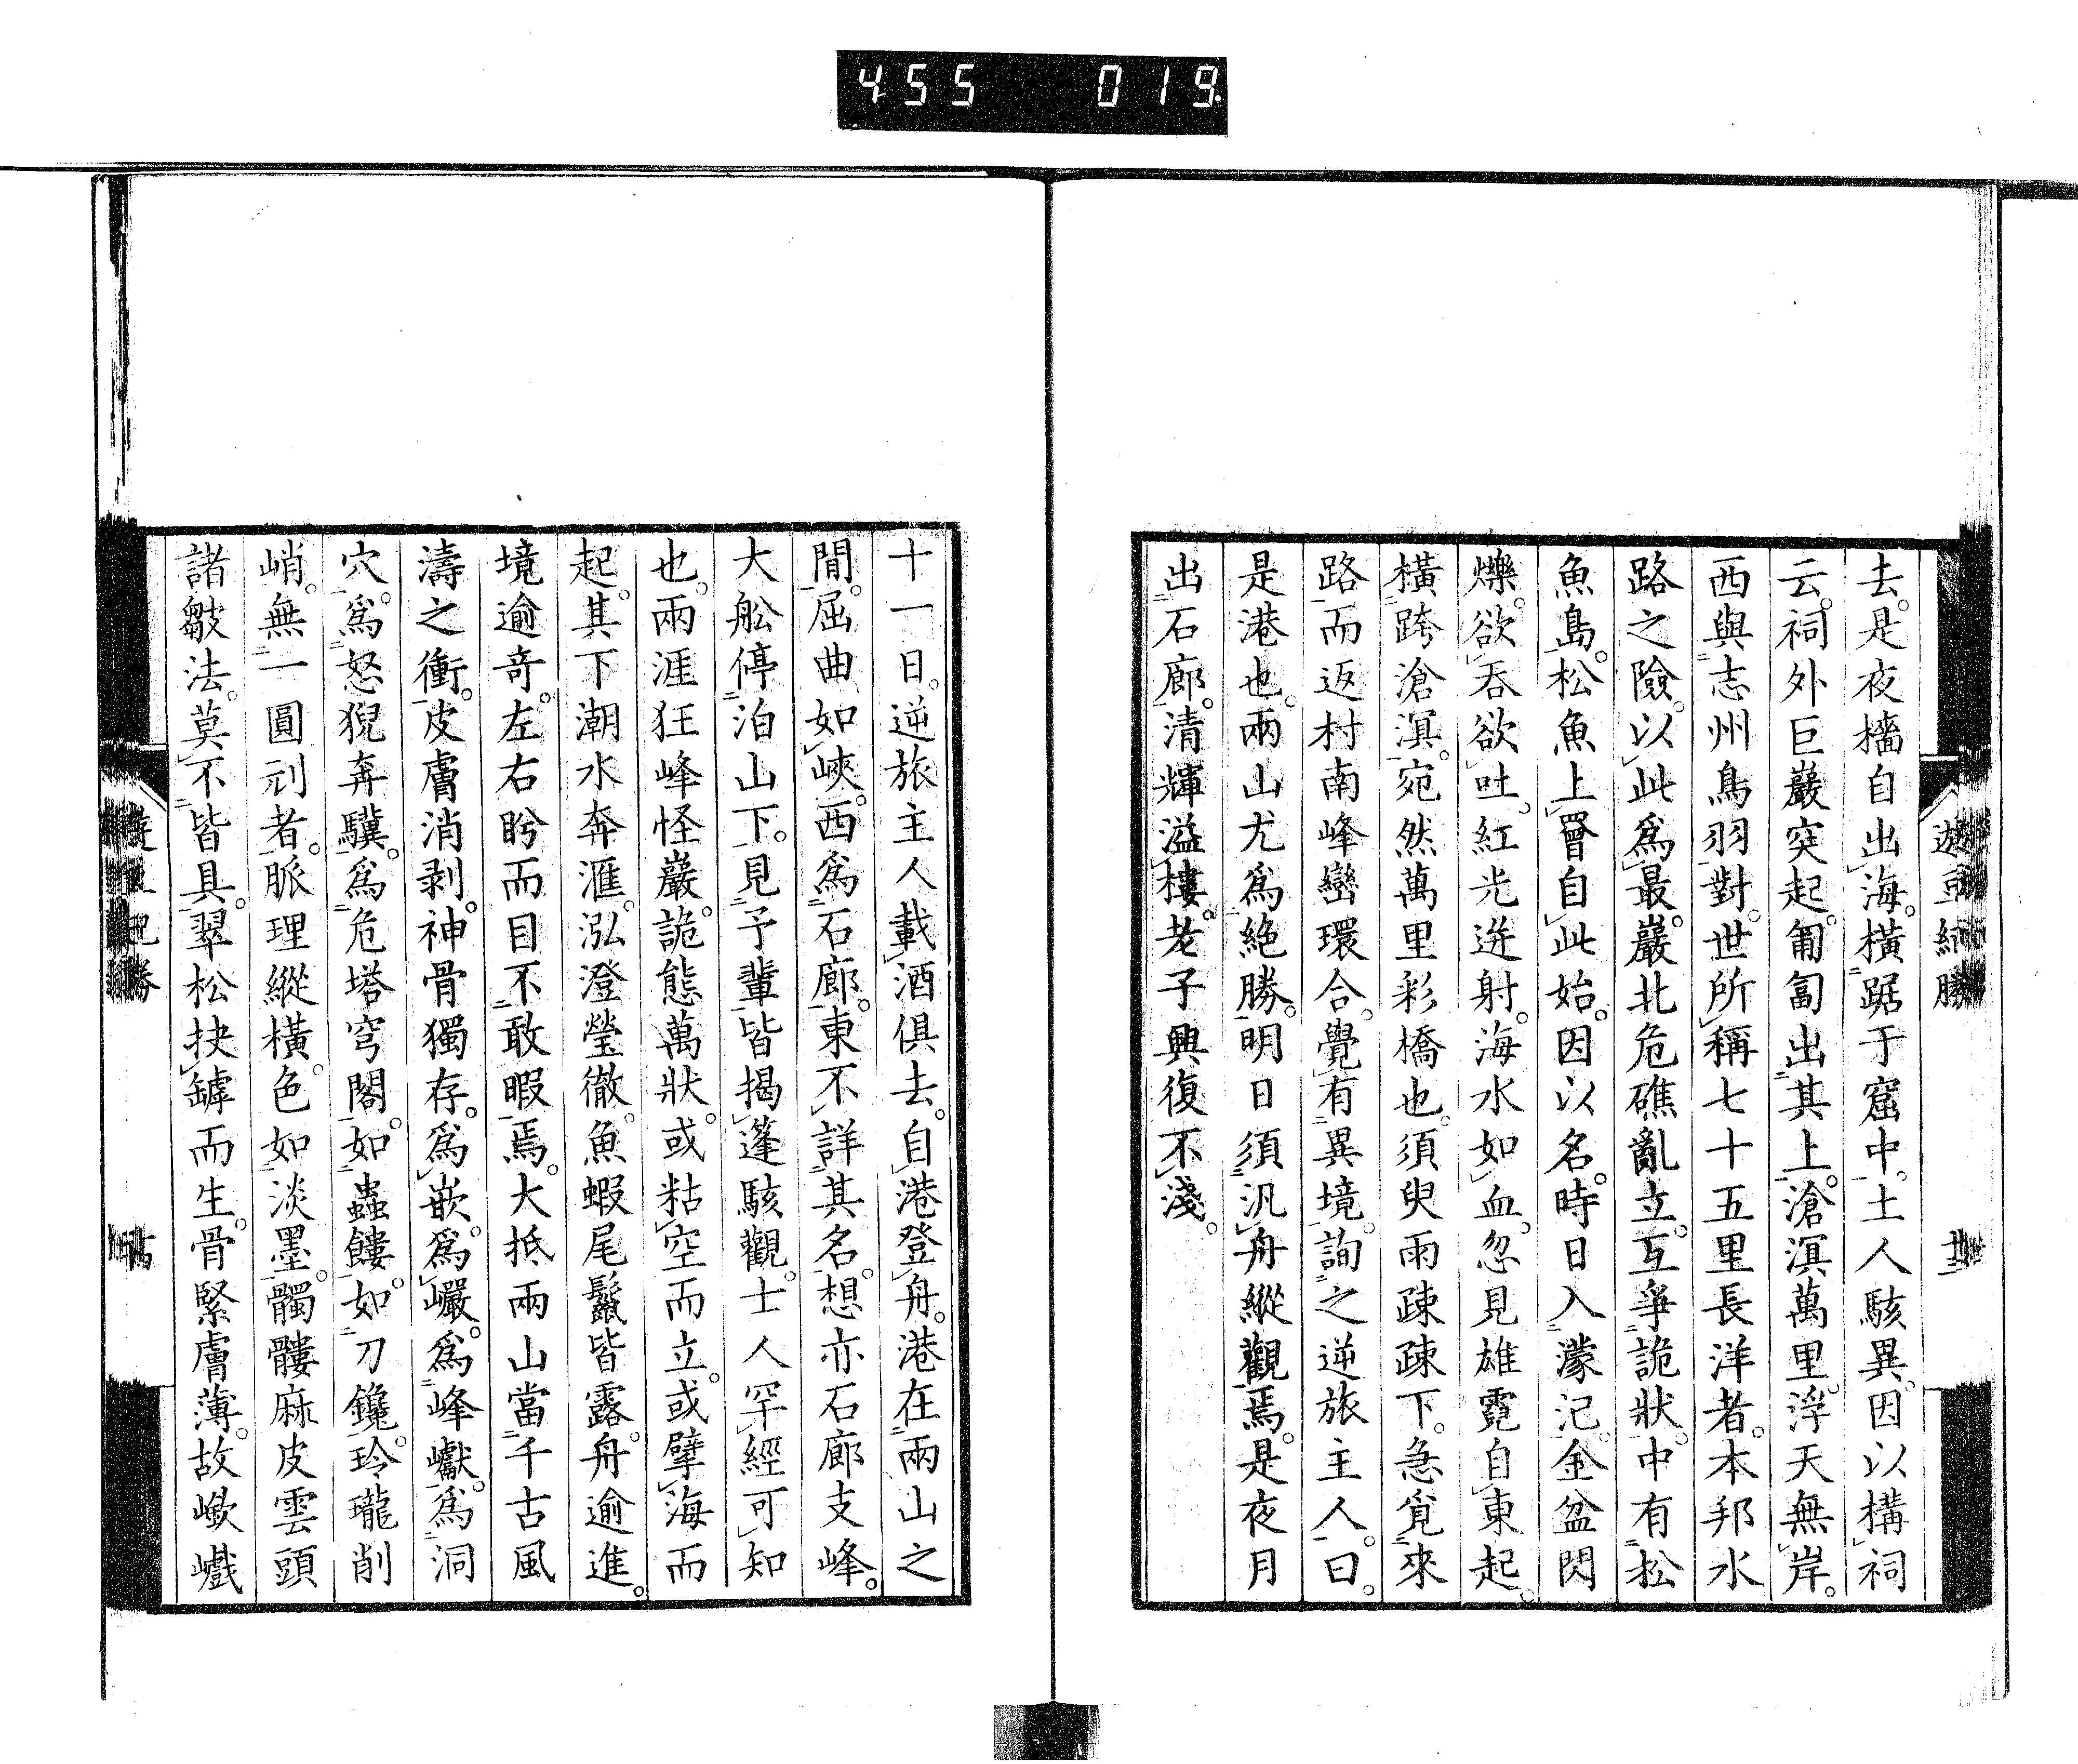 455 019
去。是夜檣自出海。橫踞于窟中。土人駭異。因以構祠
云。祠外巨巖突起。匍匐出其上。滄溟萬里。浮天無岸。
西與志州鳥羽對。世所稱七十五里長洋者。本邦水
路之險。以此爲最。巖北危礁亂立。互爭詭狀。中有松
魚島。松魚上罾自此始。因以名。時日入濛汜。金盆閃
爍。欲吞欲吐。紅光迸射。海水如血。忽見雄霓自東起。
橫跨滄溟。宛然萬里彩橋也。須臾雨疎疎下。急覓來
路而返村。南峰巒環合。覺有異境。詢之逆旅主人。曰。
是港也。兩山尤爲絶勝。明日須汎舟縱觀焉。是夜月
出石廊。清輝溢樓。老子興復不淺。
十一日。逆旅主人載酒俱去。自港登舟。港在兩山之
間。屈曲如峽。西爲石廊。東不詳其名。想亦石廊支峰。
大舩停泊山下。見予輩皆揭篷駭觀。士人罕經可知
也。兩涯狂峰怪巖。詭態萬狀。或粘空而立。或擘海而
起。其下潮水奔滙。泓澄瑩徹。魚蝦尾鬣皆露。舟逾進。
境逾奇。左右眄而目不敢暇焉。大抵兩山當千古風
濤之衝。皮膚消剥。神骨獨存。爲嵌。爲巖。爲峰巘。爲洞
穴。爲怒猊奔驥。爲危塔穹閣。如蟲饐。如刀鑱。玲瓏削
峭。無一圓刓者。脈理縱橫。色如淡墨。髑髏麻皮雲頭
諸皺法。莫不皆具。翠松抉罅而生。骨緊膚薄。故嶔巇